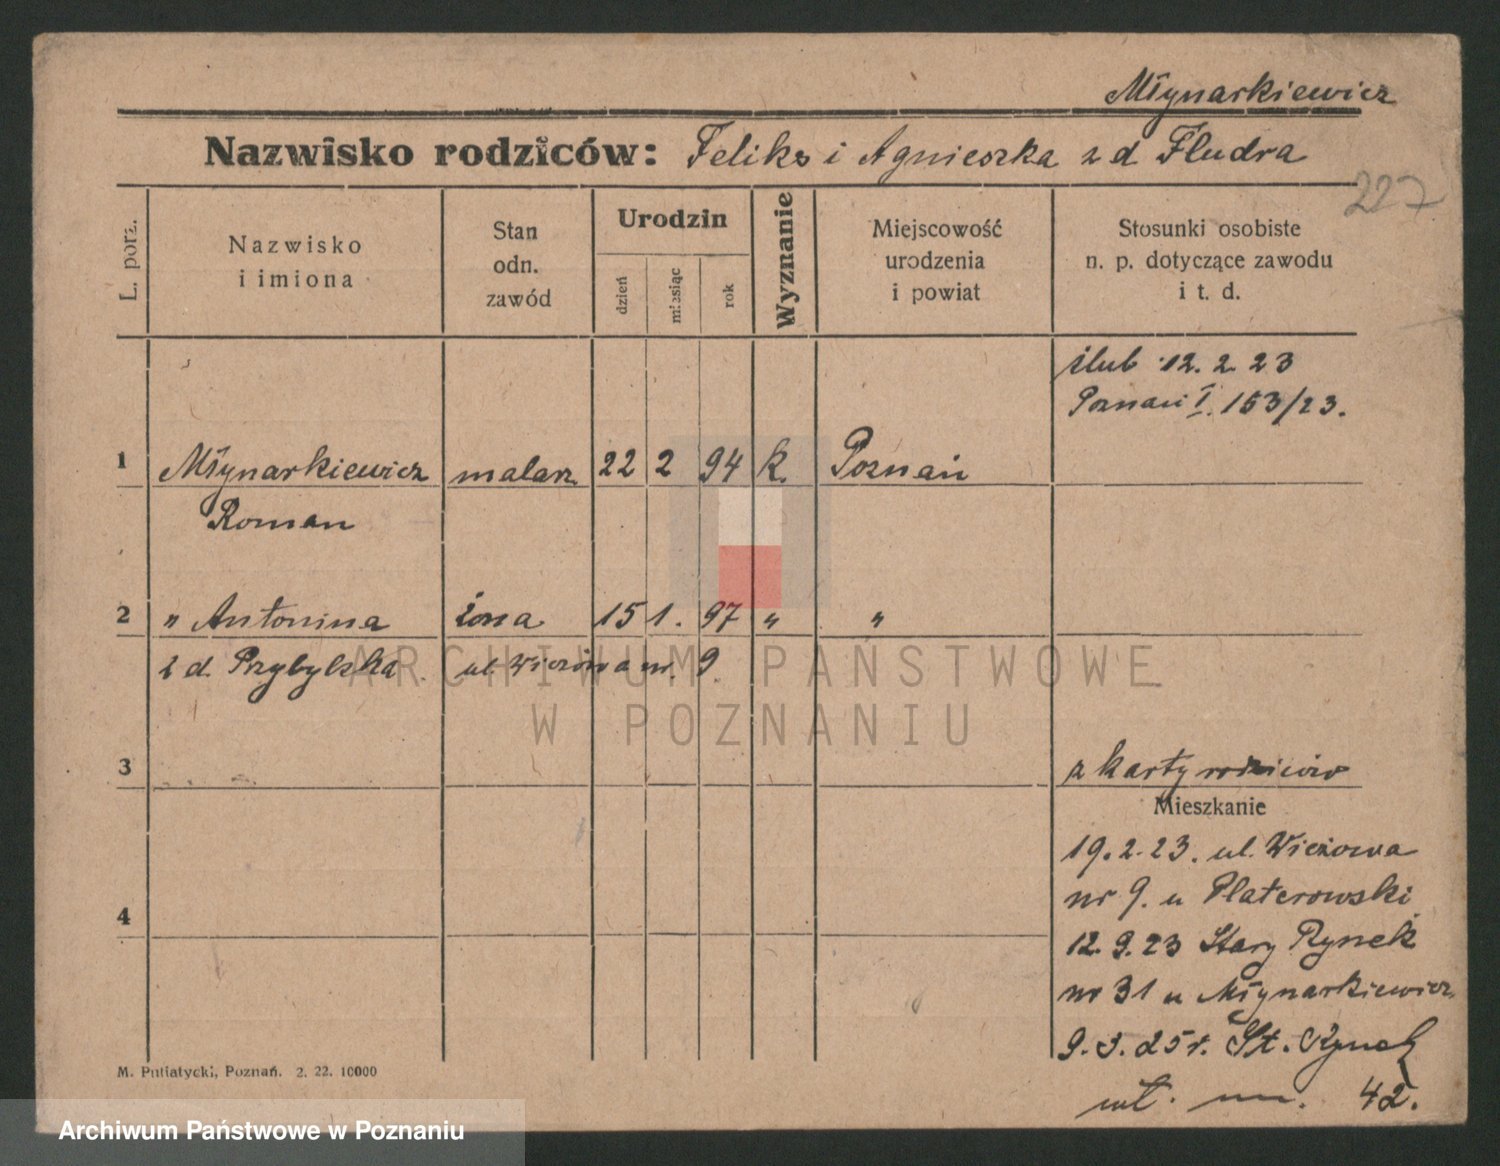 Młynarkiewicz
Nazwisko rodziców: Feliks i Agnieszka z d Fludra
227
L. porz.
Nazwisko
i imiona
Stan
odn.
zawód
Urodzin
dzień
miesiąc
rok
Wyznanie
Miejscowość
urodzenia
i powiat
Stosunki osobiste
n. p. dotyczące zawodu
i t. d.
ślub 12. 2. 23
Poznań I. 153/23.
1 Młynarkiewicz malarz 22 2 94 k. Poznań
Roman
2 " Antonina żona 15 1. 97 " "
z d. Przybylska ul. Wieżowa nr. 9.
ARCHIWUM PAŃSTWOWE
W POZNANIU
3 z karty rodziców
Mieszkanie
19. 2. 23. ul. Wieżowa
nr 9. u Platerowski
4
12. 9. 23 Stary Rynek
nr 31 u Młynarkiewicz
9. 3. 25 r. St. Rynek
42.
M. Putiatycki, Poznań. 2. 22. 10000
Archiwum Państwowe w Poznaniu